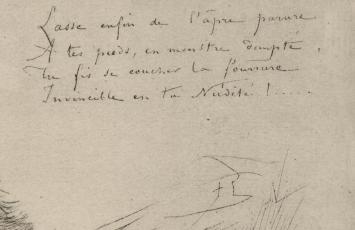 Lasse enfin de l'âpre parure
A tes pieds, en monstre dompté,
Tu fis se coucher la fourrure
Invincible en ta Nudité !.....